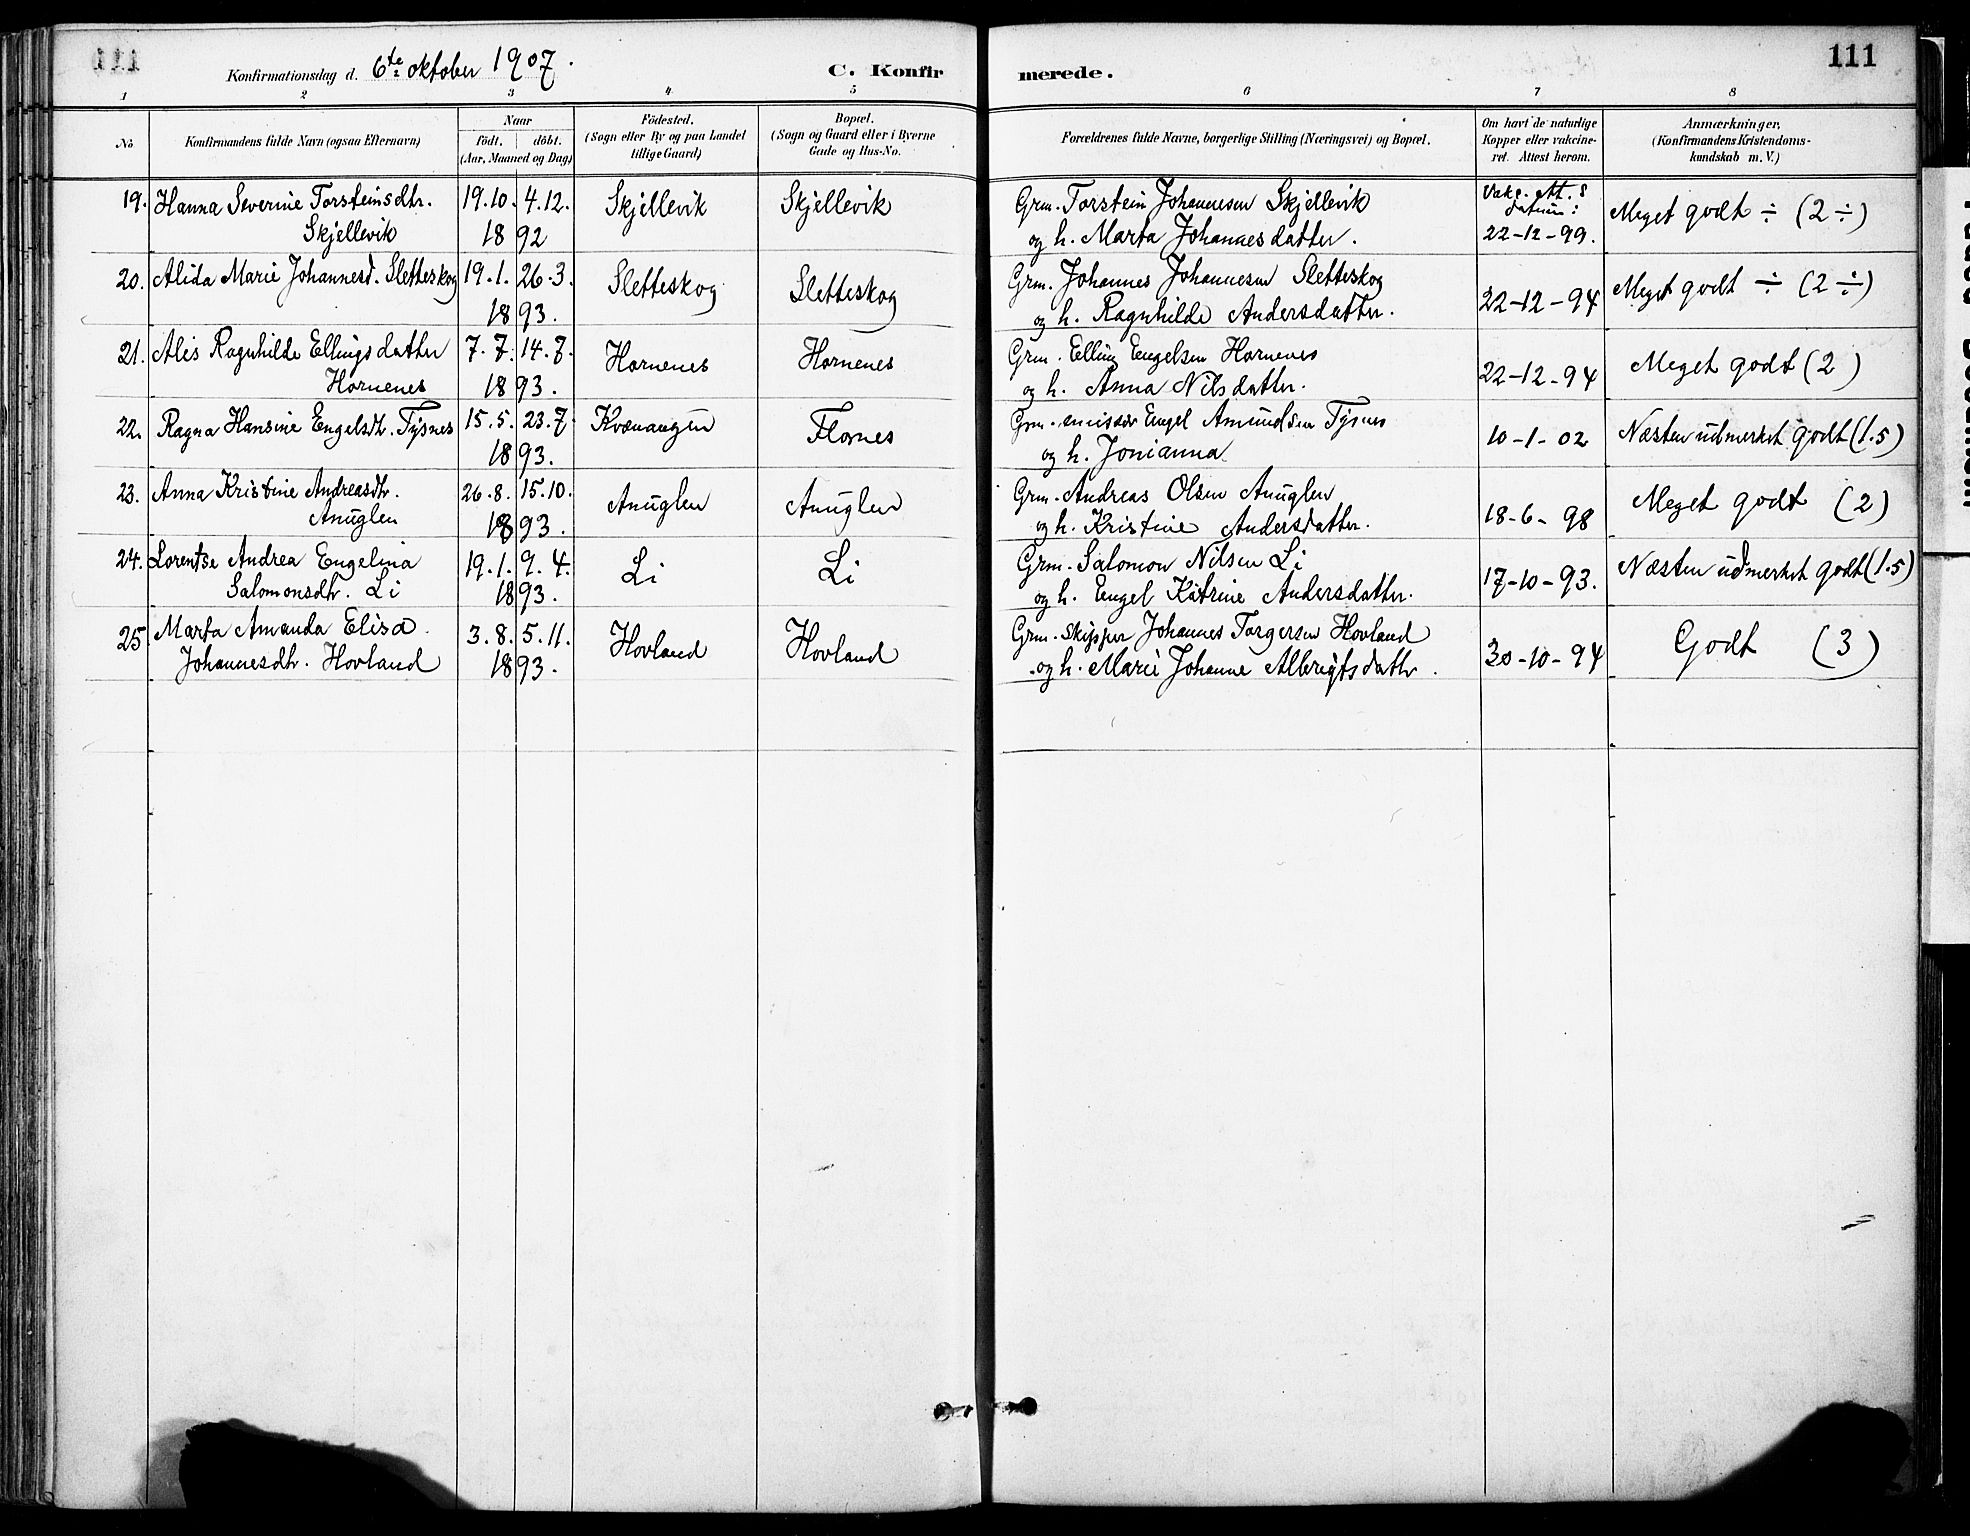 Konfirmationsdag d. 6te oktober 1907.
C. Konfirmerede.
111
1 2 3 4 5 6 7 8
No.
Konfirmandens fulde Navn (ogsaa Efternavn)
Naar
födt. döbt.
(Aar, Maaned og Dag)
Födested.
(Sogn eller By og paa Landet
tillige Gaard)
Bopæl.
(Sogn og Gaard eller i Byerne
Gade og Hus-No.
Forældrenes fulde Navne, borgerlige Stilling (Næringsvei) og Bopæl.
Om havt de naturlige
Kopper eller vakcine-
ret. Attest herom.
Anmærkninger,
(Konfirmandens Kristendoms-
kundskab m. V.)
19. Hanna Severine Torsteinsdtr. 19.10. 4.12. Skjellevik Skjellevik Grm. Torstein Johannesen Skjellevik Vakc. att.s datum: Meget godt ÷ (2 ÷)
Skjellevik 1892 og h. Marta Johannesdatter. 22-12-99.
20. Alida Marie Johannesd. Sletteskog 19.1. 26.3. Sletteskog Sletteskog Grm. Johannes Johannesen Sletteskog 22-12-94 Meget godt ÷ (2 ÷)
1893. og h. Ragnhilde Andersdatter.
21. Alis Ragnhilde Ellingsdatter 7.7. 14.7. Hornenes Hornenes Grm. Elling Engelsen Hornenes 22-12-94 Meget godt (2)
Hornenes 1893. og h. Anna Nilsdatter.
22. Ragna Hansine Engelsdtr. Tysnes 15.5. 23.7. Kvænangen Flornes Grm. Engel Amundsen Tysnes 10-1-02 Næsten udmerket godt (1.5)
1893. og h. Jonianna
23. Anna Kristine Andreasdtr. 26.8. 15.10. Anuglen Anuglen Grm. Andreas Olsen Anuglen 18-6-98 Meget godt (2)
Anuglen 1893. og h. Kristine Andersdatter.
24. Lorentse Andrea Engelina 19.1. 9.4. Li Li Grm. Salomon Nilsen Li 17-10-93. Næsten udmerket godt (1.5)
Salomonsdtr. Li 1893. og h. Engel Katrine Andersdatter.
25. Marta Amanda Elisa 3.8. 5.11. Hovland Hovland Grm. skipper Johannes Torgersen Hovland 30-10-94 Godt (3)
Johannesdtr. Hovland 1893. og h. Marie Johanne Albrigtsdattr.